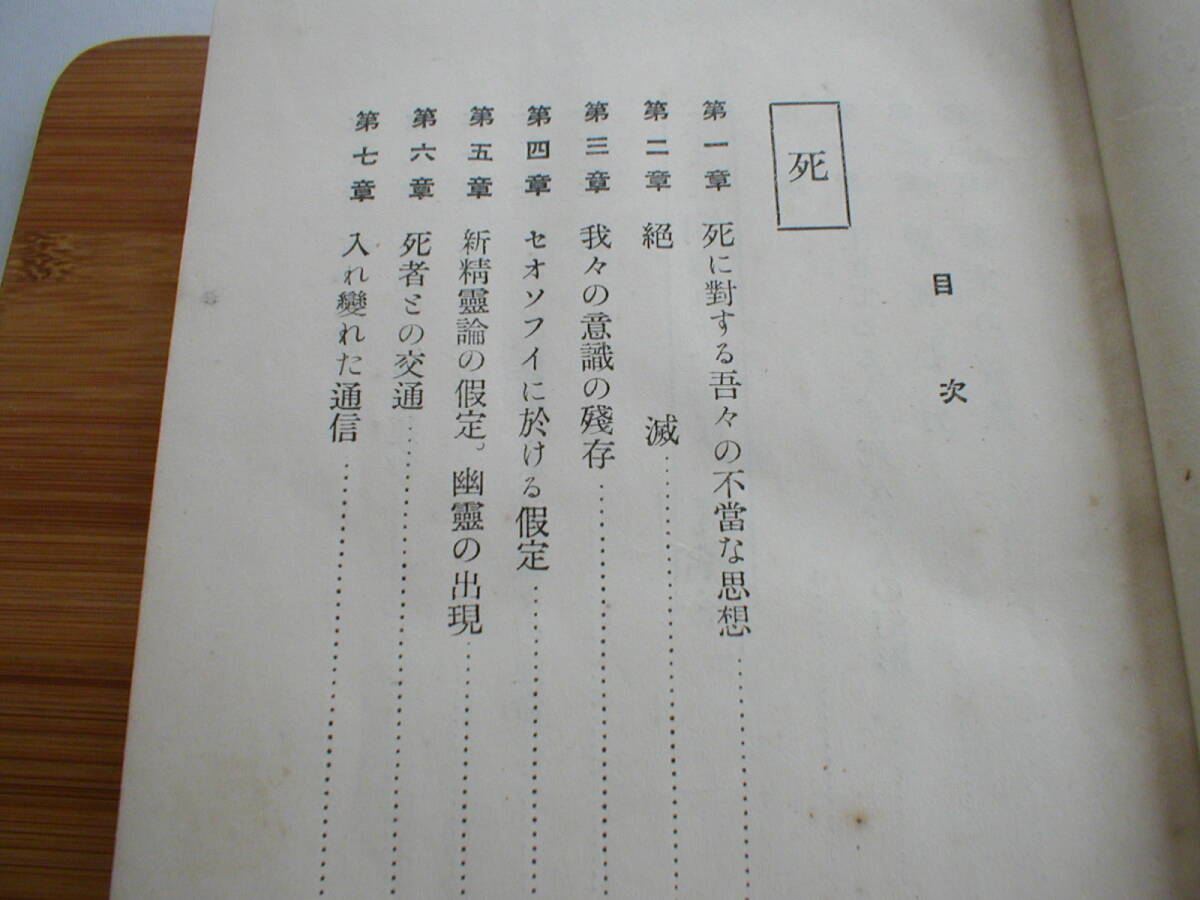 目次
死
第一章 死に對する吾々の不當な思想
第二章 絕滅
第三章 我々の意識の殘存
第四章 セオソフイに於ける假定
第五章 新精靈論の假定。幽靈の出現
第六章 死者との交通
第七章 入れ變れた通信